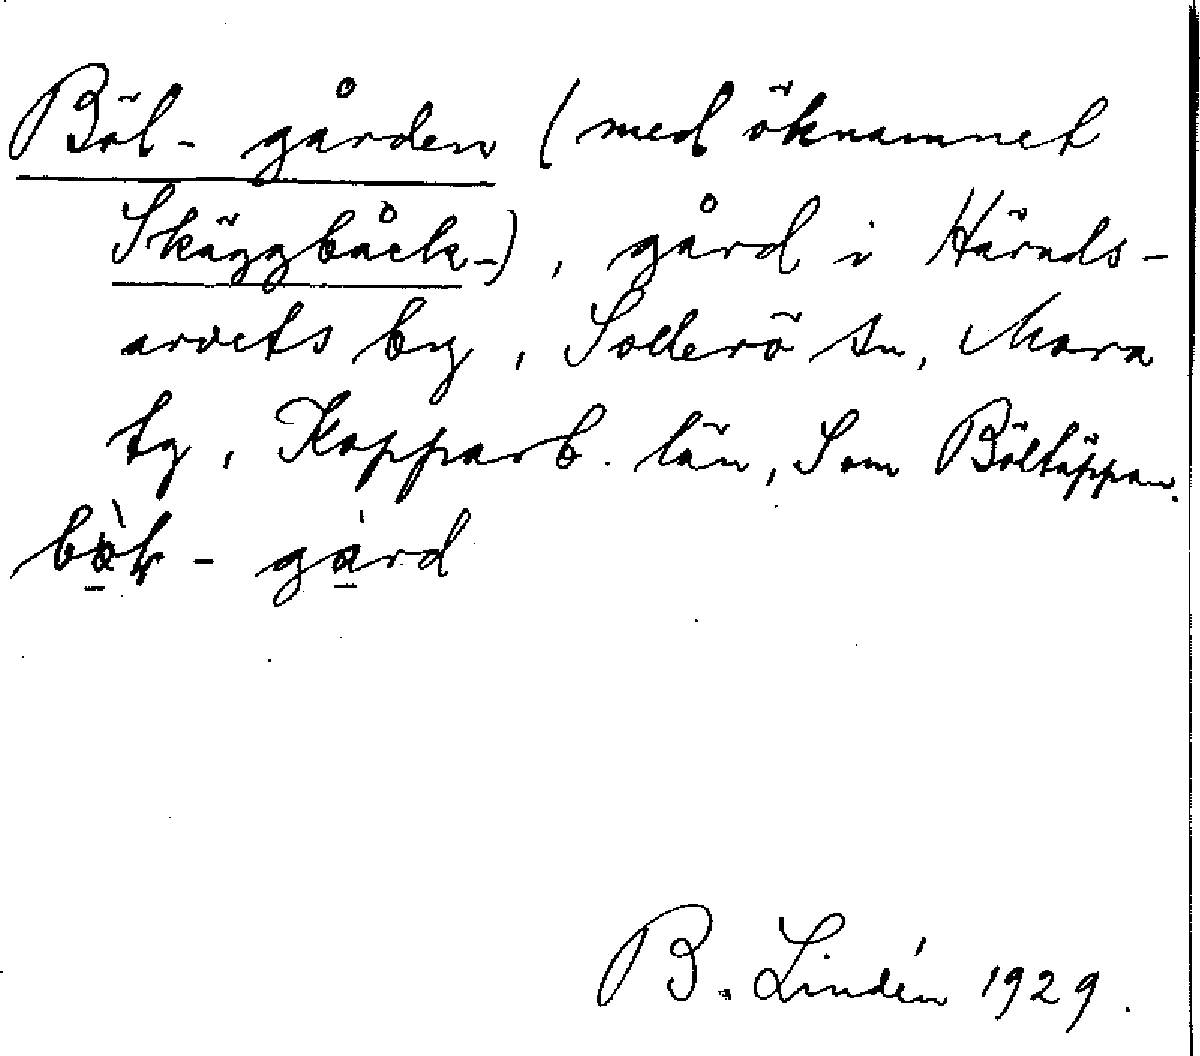 Böl-gården (med öknamnet
Skäggbåck-), gård i Härads-
arvets by, Sollerö sn, Mora
tg, Kopparb. län, Som Böltäppan.
- gård
B. Lindén 1929.